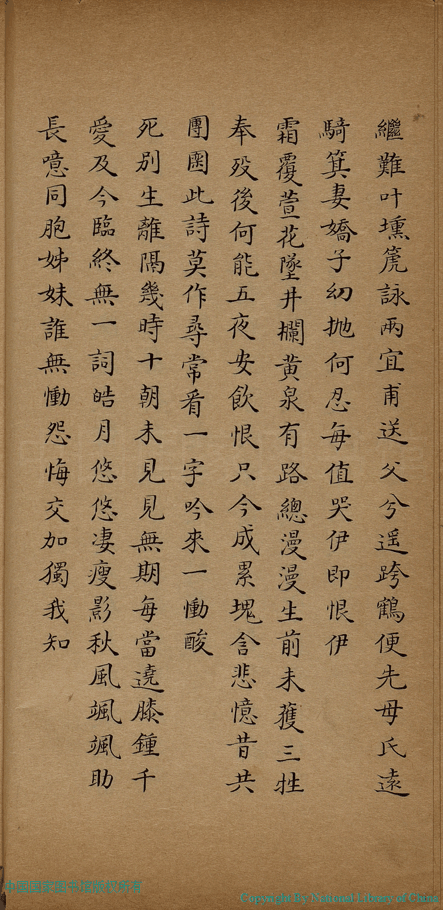 繼難叶壎箎詠兩宜甫送父兮遥跨鶴便先母氏遠
騎箕妻嬌子幼抛何忍每值哭伊即恨伊
霜覆萱花墜井欄黄泉有路總漫漫生前未獲三牲
奉殁後何能五夜安飲恨只今成累塊含悲憶昔共
團圞此詩莫作尋常看一字吟來一慟酸
死别生離隔幾時十朝未見見無期每當遶膝鍾千
愛及今臨終無一詞皓月悠悠凄瘦影秋風颯颯助
長噫同胞姊妹誰無慟怨悔交加獨我知
中国国家数字图书馆版权所有
Copyright by National Library of China